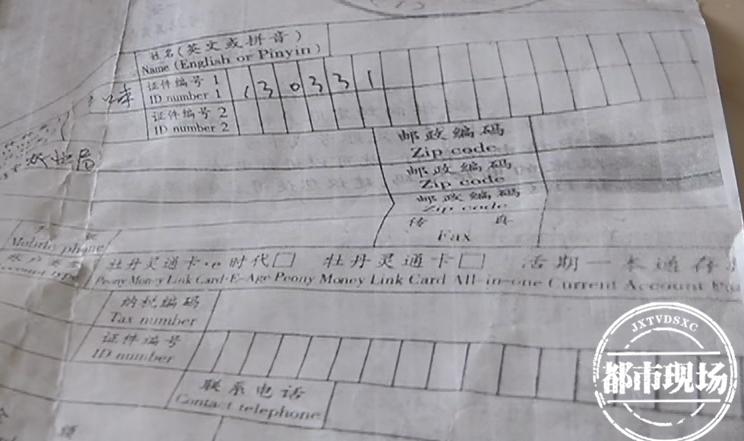 姓名(英文或拼音)
Name (English or Pinyin)
证件编号 1
ID number 1
130331
证件编号 2
ID number 2
邮政编码
Zip code
邮政编码
Zip code
邮政编码
Zip code
传 真
Fax
Mobile phone
牡丹灵通卡·e时代□ 牡丹灵通卡□ 活期一本通存
Peony Money Link Card·E-Age Peony Money Link Card All-in-one Current Account
纳税编码
Tax number
证件编号
ID number
联系电话
Contact telephone
JXTVDSXC
都市现场